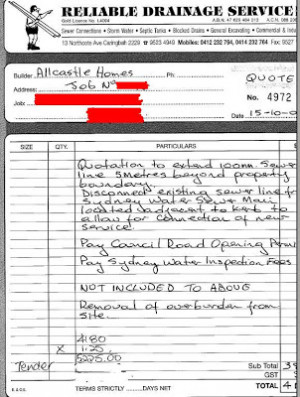 RELIABLE DRAINAGE SERVICE
Gold Licence No.
A.B.N. 47
Sewer Connections • Storm Water • Septic Tanks • Blocked Drains • General Excavating • Commercial &
13 Northcote Ave Caringbah 2229 9523 4040 Mobiles: 0412 232 784, 0414 232 784 Fax: 9527
Builder Allcastle Homes Ph QUOTE
Address: Job No
No. 4972
Job: Date 15-10-0
SIZE QTY. PARTICULARS
Quotation to extend 100mm Sewer
line 5 metres beyond property
boundary.
Disconnect existing sewer line fr
Sydney Water Sewer Main
located adjacent to kerb to
allow for connection of new
service.
Pay Council Road Opening Perm
Pay Sydney Water Inspection Fees
NOT INCLUDED TO ABOVE
Removal of overburden from
site.
4180
x 1.25
5225.00
Tender
Sub Total
GST
TERMS STRICTLY DAYS NET TOTAL 4